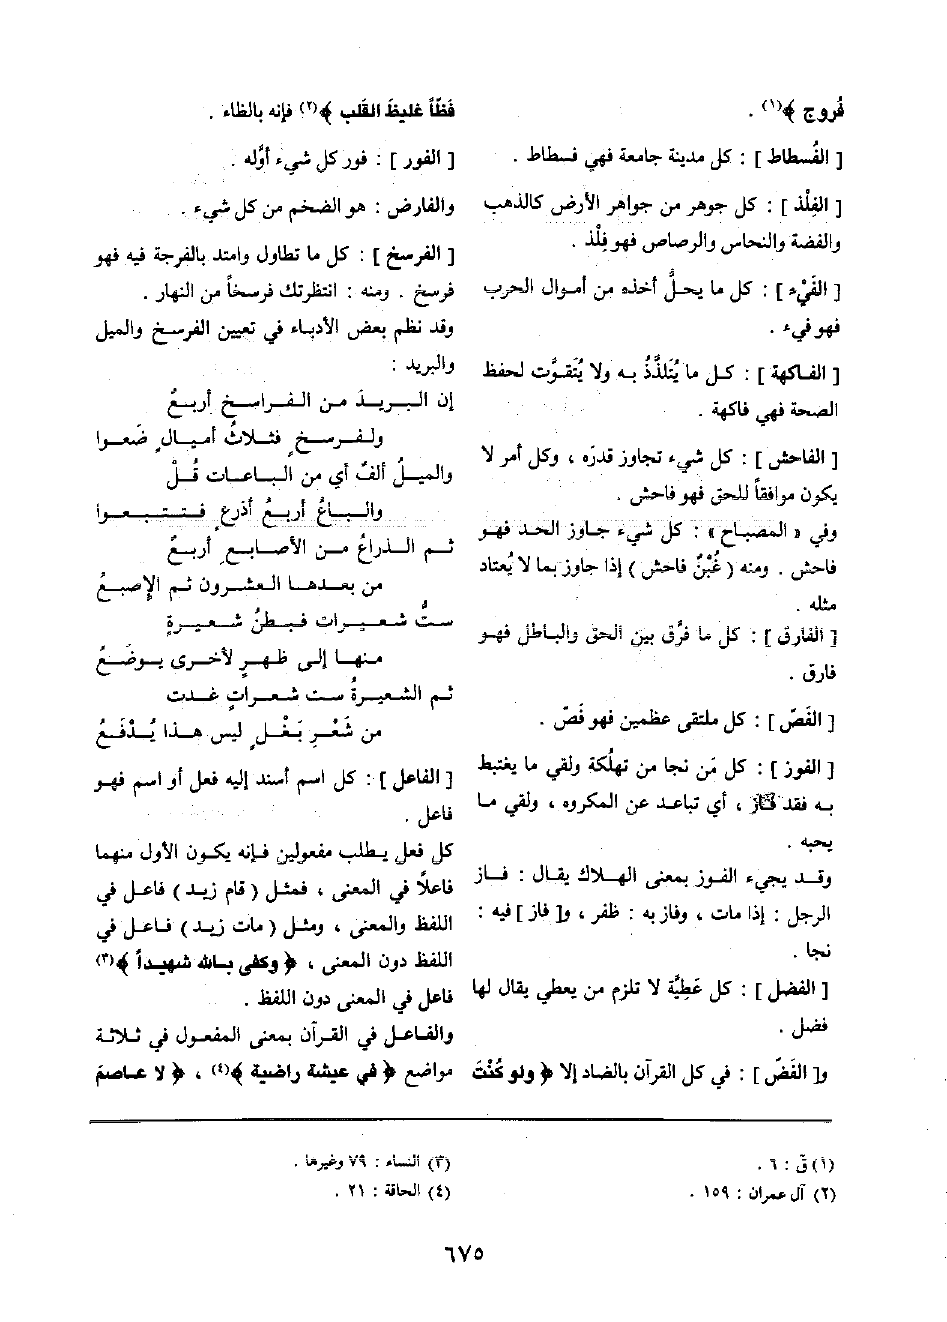 فُروج ﴾(١) .
[ الفُسطاط ] : كل مدينة جامعة فهي فسطاط .
[ الفِلْذ ] : كل جوهر من جواهر الأرض كالذهب
والفضة والنحاس والرصاص فهو فِلْذ .
[ الفَيْء ] : كل ما يحلُّ أخذه من أموال الحرب
فهو فيء .
[ الفاكهة ] : كل ما يُتَلذَّذُ به ولا يُتقوَّت لحفظ
الصحة فهي فاكهة .
[ الفاحش ] : كل شيء تجاوز قدرَه ، وكل أمر لا
يكون موافقاً للحق فهو فاحش .
وفي « المصباح » : كل شيء جاوز الحد فهو
فاحش . ومنه ( غُبْنٌ فاحش ) إذا جاوز بما لا يُعتاد
مثله .
[ الفارق ] : كل ما فرَّق بين الحق والباطل فهو
فارق .
[ الفَصّ ] : كل ملتقى عظمين فهو فَصّ .
[ الفوز ] : كل مَن نجا من تهلُكة ولقي ما يغتبط
به فقد فاز ، أي تباعد عن المكروه ، ولقي ما
يحبه .
وقد يجيء الفوز بمعنى الهلاك يقال : فاز
الرجل : إذا مات ، وفاز به : ظفر ، و[ فاز ] فيه :
نجا .
[ الفضل ] : كل عَطِيَّة لا تلزم من يعطي يقال لها
فضل .
و[ الفَضّ ] : في كل القرآن بالضاد إلا ﴿ ولو كُنْتَ
فَظّاً غليظَ القلب ﴾(٢) فإنه بالظاء .
[ الفور ] : فور كل شيء أوَّله .
والفارض : هو الضخم من كل شيء .
[ الفرسخ ] : كل ما تطاول وامتد بالفرجة فيه فهو
فرسخ . ومنه : انتظرتك فرسخاً من النهار .
وقد نظم بعض الأدباء في تعيين الفرسخ والميل
والبريد :
إن البريدَ من الفراسخ أربعُ
ولفرسخٍ فثلاثُ أميالٍ ضَعوا
والميلُ ألفٌ أي من الباعات قُلْ
والباعُ أربعُ أذرعٍ فتتبعوا
ثم الذراعُ من الأصابع أربعُ
من بعدها العشرون ثم الإصبعُ
ستُّ شعيرات فبطنُ شعيرةٍ
منها إلى ظهرٍ لأخرى يوضَعُ
ثم الشعيرةُ ست شعراتٍ غدت
من شَعْرِ بَغْلٍ ليس هذا يُدْفَعُ
[ الفاعل ] : كل اسم أسند إليه فعل أو اسم فهو
فاعل .
كل فعل يطلب مفعولين فإنه يكون الأول منهما
فاعلاً في المعنى ، فمثل ( قام زيد ) فاعل في
اللفظ والمعنى ، ومثل ( مات زيد ) فاعل في
اللفظ دون المعنى ، ﴿ وكفى بالله شهيداً ﴾(٣)
فاعل في المعنى دون اللفظ .
والفاعل في القرآن بمعنى المفعول في ثلاثة
مواضع ﴿ في عيشة راضية ﴾(٤) ، ﴿ لا عاصمَ
(١) قۤ : ٦ .
(٢) آل عمران : ١٥٩ .
(٣) النساء : ٧٩ وغيرها .
(٤) الحاقة : ٢١ .
٦٧٥